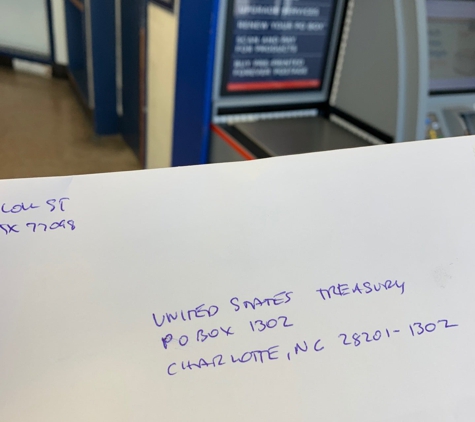 UPGRADE SERVICES
RENEW YOUR PO BOX
SCAN AND PAY
FOR PRODUCTS
BUY PRE-PRINTED
FOREVER POSTAGE
ST
77098
UNITED STATES TREASURY
PO BOX 1302
CHARLOTTE, NC 28201-1302